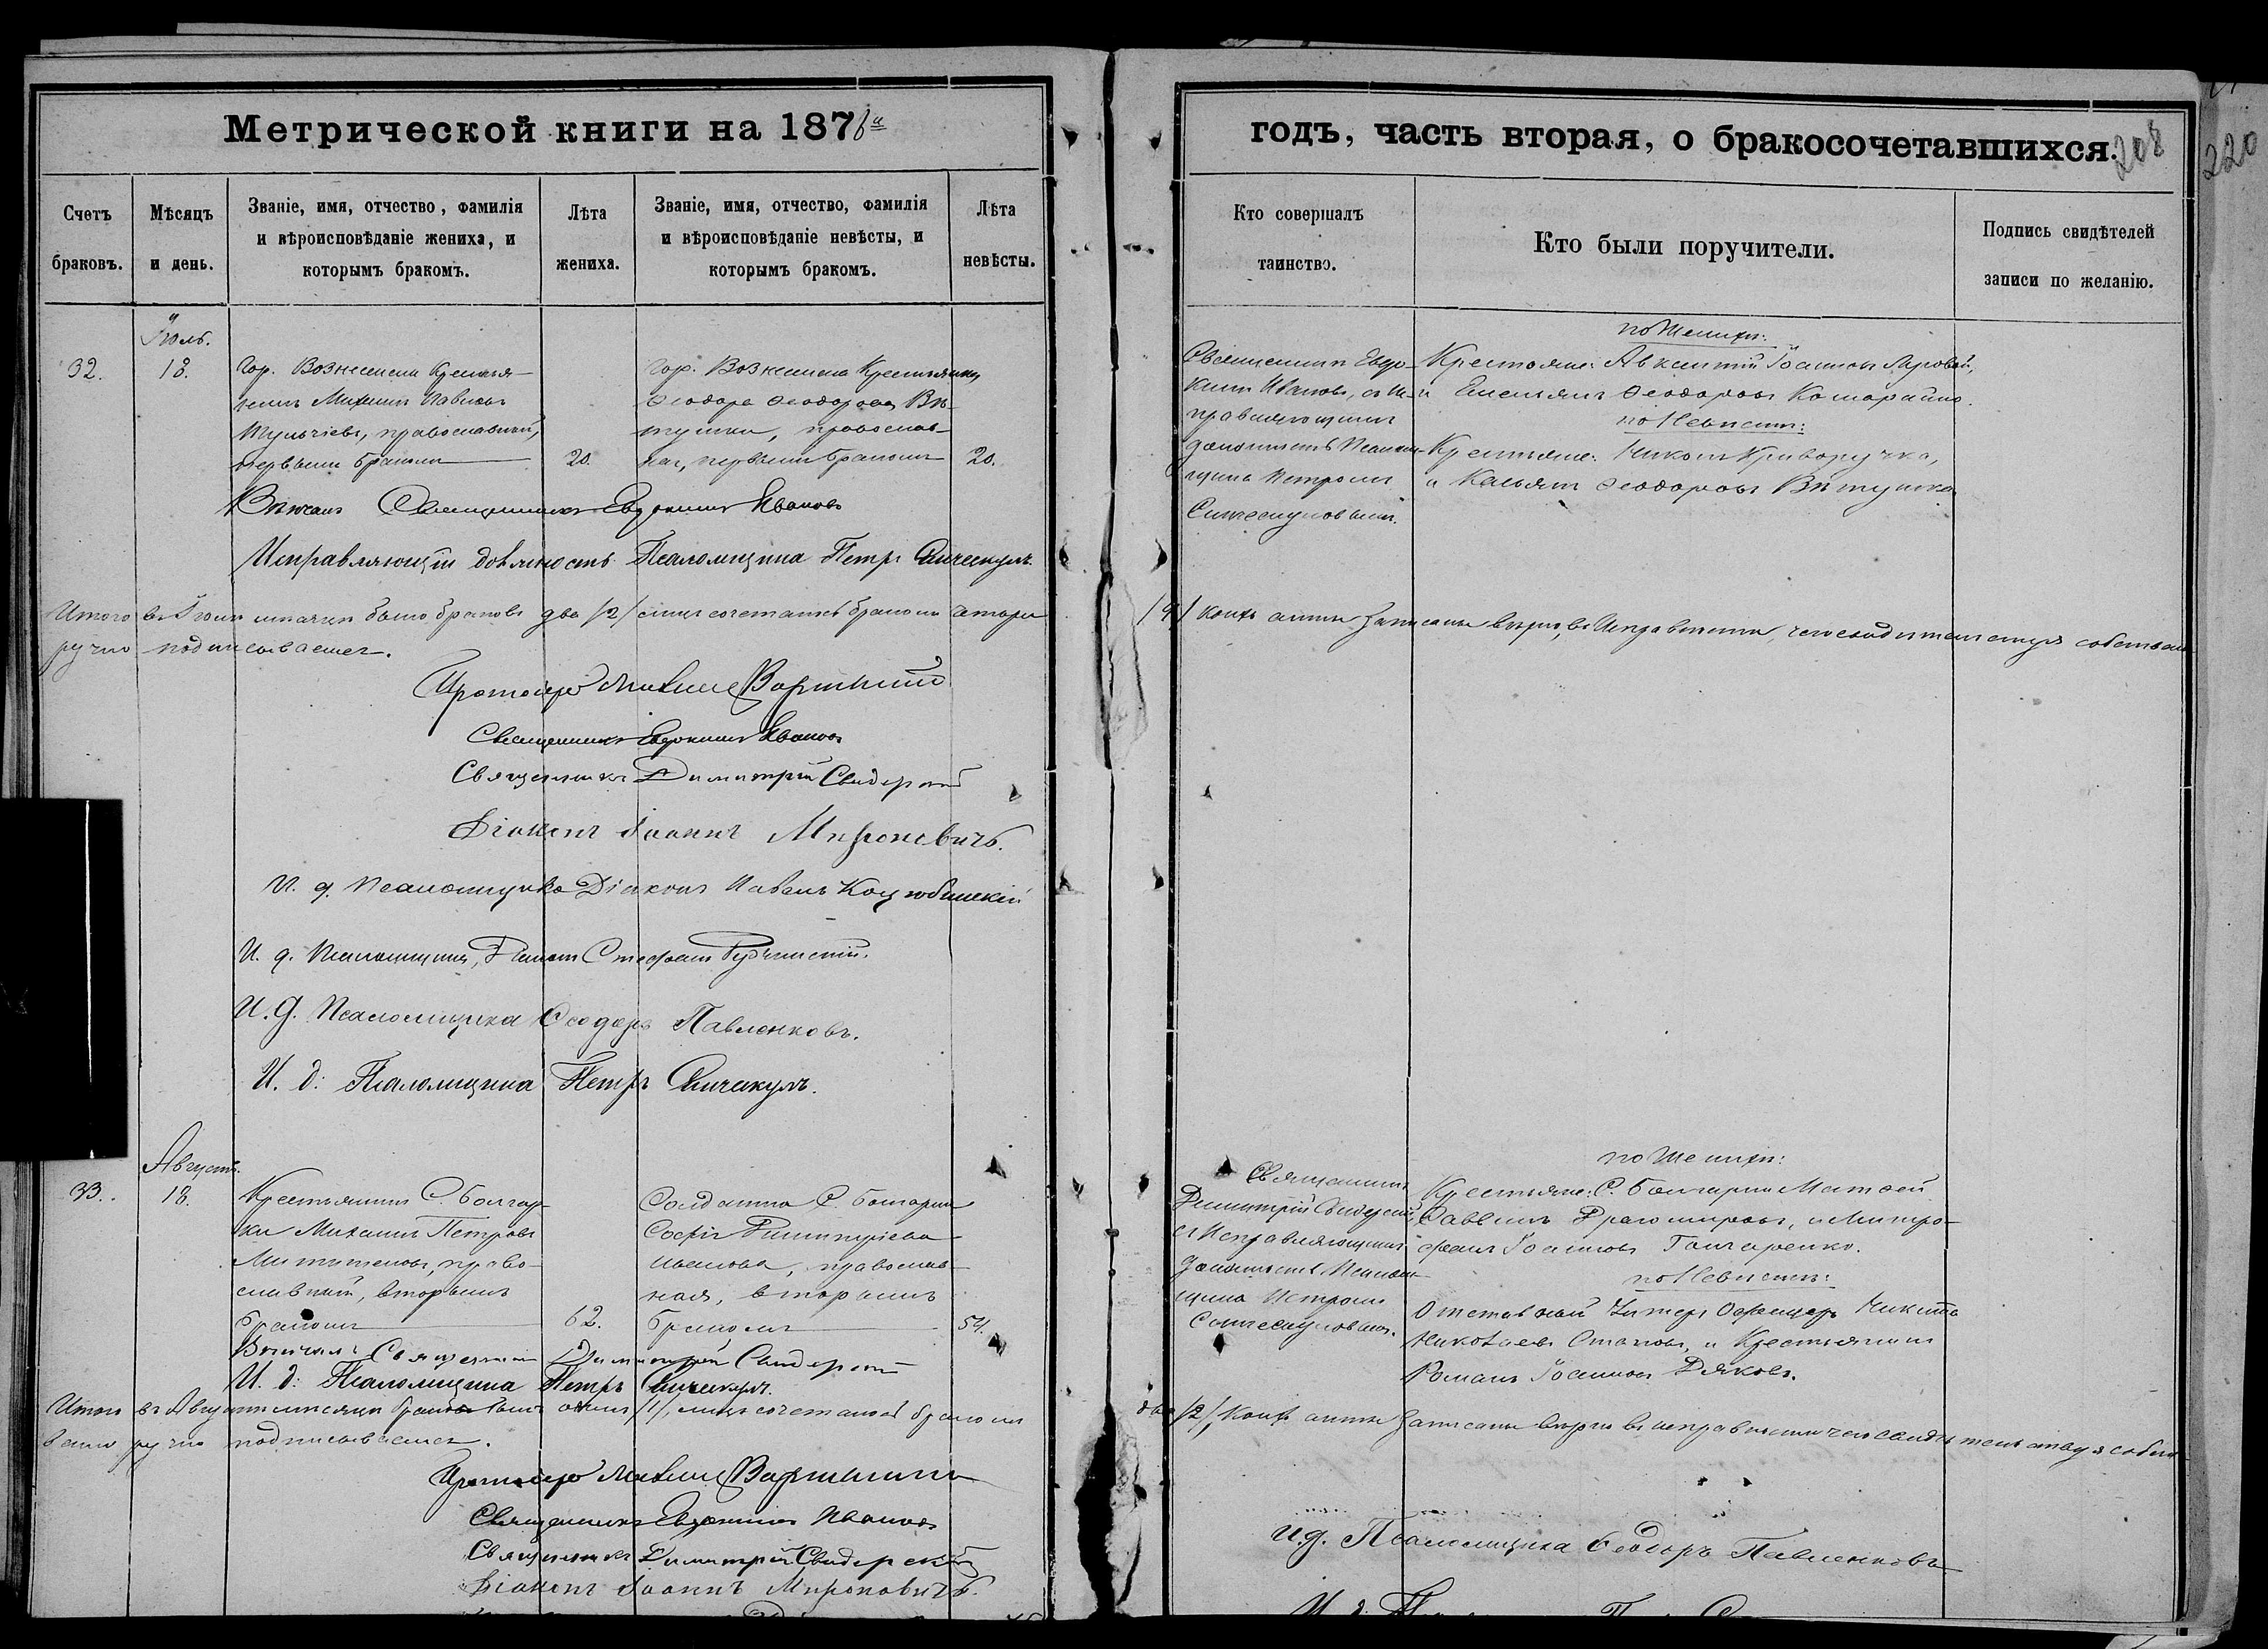 Метрической книги на 1876й
годъ, часть вторая, о бракосочетавшихся.
208
220
Счетъ браковъ.
Мѣсяцъ и день.
Званіе, имя, отчество, фамилія
и вѣроисповѣданіе жениха, и
которымъ бракомъ.
Лѣта жениха.
Званіе, имя, отчество, фамилія
и вѣроисповѣданіе невѣсты, и
которымъ бракомъ.
Лѣта невѣсты.
Кто совершалъ
таинство.
Кто были поручители.
Подпись свидѣтелей
записи по желанію.
Іюль.
32.
18.
Гор. Вознесенска Крестья-
нинъ Михаилъ Павловъ
православный,
первымъ бракомъ
20.
Гор. Вознесенска Крестьянка
Ѳеодора Ѳеодорова Вѣ-
тушка, православ-
ная, первымъ бракомъ
20.
Священникъ Евдо-
кимъ Ивановъ, съ Ис-
правляющимъ
должность Псалом-
щика Петромъ
по Женихѣ:
Крестьяне: Авксентій Іоанновъ
и Емельянъ Ѳеодоровъ
по Невѣстѣ:
Крестьяне: Криворучка,
и Ѳеодоровъ Вѣтушка
Вѣнчалъ Священникъ Евдокимъ Ивановъ
Исправляющій должность Псаломщика Петръ
Итого въ Іюлѣ мѣсяцѣ было браковъ два /2/ лицъ сочетавшихся бракомъ четыре
/4/ записаны вѣрно, въ исправности, чемъ свидѣтельствуя собствен
ручно подписываемся.
Протоіерей
Священникъ Евдокимъ Ивановъ
Священникъ Димитрій Свидерскій
Діаконъ Іоаннъ Мироновичъ.
И. д. Псаломщика Діаконъ Павелъ Коцюбинскій
И. д. Псаломщика, Стефанъ
И. д. Псаломщика Ѳеодоръ Павленковъ.
И. д: Псаломщика Петръ
Августъ.
33.
18.
Крестьянинъ С. Болгар-
ки Михаилъ Петровъ
право-
славный, вторымъ
бракомъ
62.
Солдатка С. Болгарки
Софія Димитріева
православ-
ная, вторымъ
бракомъ
54.
Священникъ
Димитрій Свидерскій
съ Исправляющимъ
должность Псалом-
щика Петромъ
по Женихѣ:
Крестьяне: С. Болгарки Матѳей
Саввинъ Драгомировъ, и Митро-
фанъ Іоанновъ Гончаренко.
по Невѣстѣ:
Отставной Унтеръ Офицеръ Никита
Николаевъ и Крестьянинъ
Романъ Іоанновъ Дяковъ.
Вѣнчалъ Священникъ Димитрій Свидерскій
И. д: Псаломщика Петръ
Итого въ Августѣ мѣсяцѣ браковъ одинъ /1/, лицъ сочетавшихся бракомъ
два /2/, записаны вѣрно въ исправности чемъ свидѣтельствуя собст-
венно ручно подписываемся.
Протоіерей
Священникъ Евдокимъ Ивановъ
Священникъ Димитрій Свидерскій
Діаконъ Іоаннъ Мироновичъ.
И. д. Псаломщика Ѳеодоръ Павленковъ